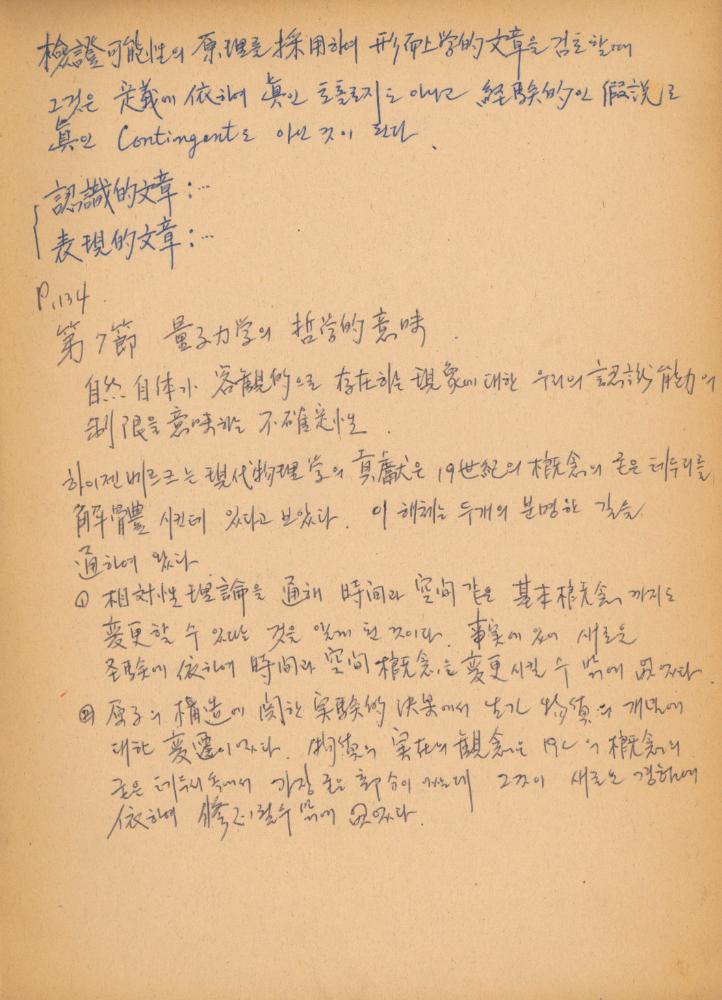 檢證可能性의 原理를 採用하여 形而上学的 文章을 검토할때
그것은 定義에 依하여 眞인 토톨로지도 아니고 経験的인 假説로
眞인 Contingent도 아닌 것이 된다.
認識的文章 : …
表現的文章 : …
P.134.
第7節 量子力学의 哲学的 意味.
自然 自体가 客観的으로 存在하는 現象에 대한 우리의 認識能力의
制限을 意味하는 不確定性.
하이젠베르크는 現代物理学의 貢獻은 19世紀의 槪念의 굳은 테두리를
解體 시킨데 있다고 보았다. 이 해체는 두개의 분명한 길을
通하여 왔다
① 相対性理論을 通해 時間과 空間 같은 基本槪念 까지도
変更할 수 있다는 것을 알게 된 것이다. 事実에 있어 새로운
経験에 依하여 時間과 空間 槪念을 変更시킬 수 밖에 없었다.
② 原子의 構造에 関한 実験的 決果에서 생긴 物質의 개념에
대한 変遷이었다. 物質의 実在의 観念은 19C의 槪念의
굳은 테두리 속에서 가장 굳은 部分이었는데 그것이 새로운 경험에
依하여 修正할수 밖에 없었다.